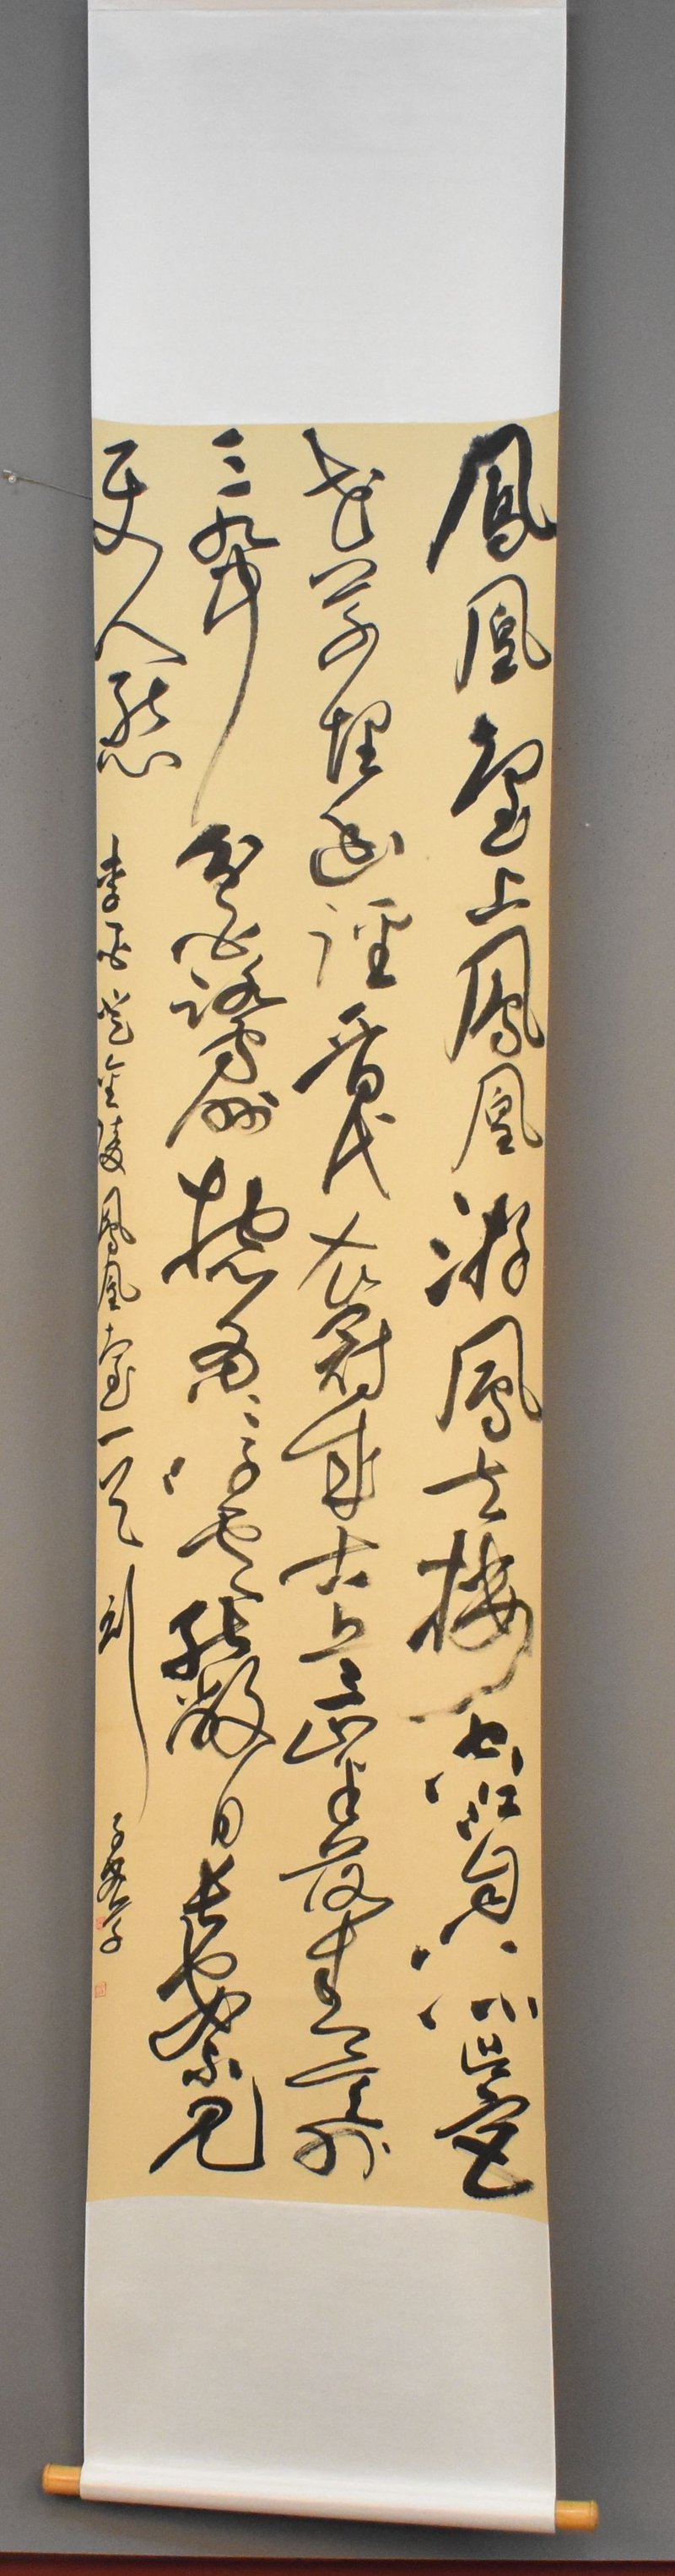 鳳凰臺上鳳凰游鳳去樓空江自流吳宮
花草埋幽徑晉代衣冠成古丘三山半落青天外
二水中分白鷺洲總為浮雲能蔽日長安不見
使人愁 李白登金陵鳳凰臺一首